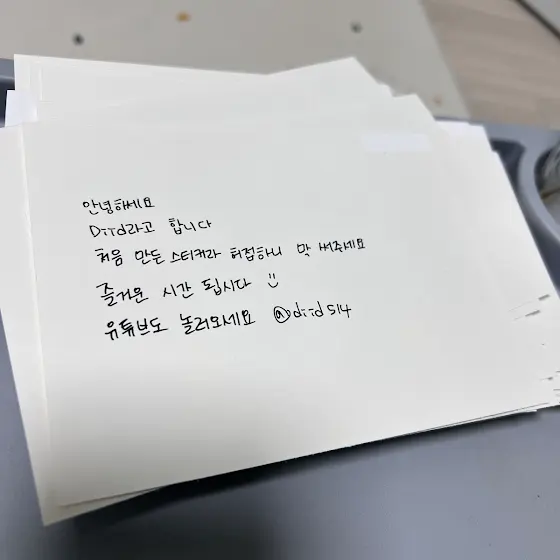 안녕하세요
Diid라고 합니다
처음 만든 스티커라 허접하니 막 써주세요
즐거운 시간 됩시다 :)
유튜브도 놀러오세요 @diid514